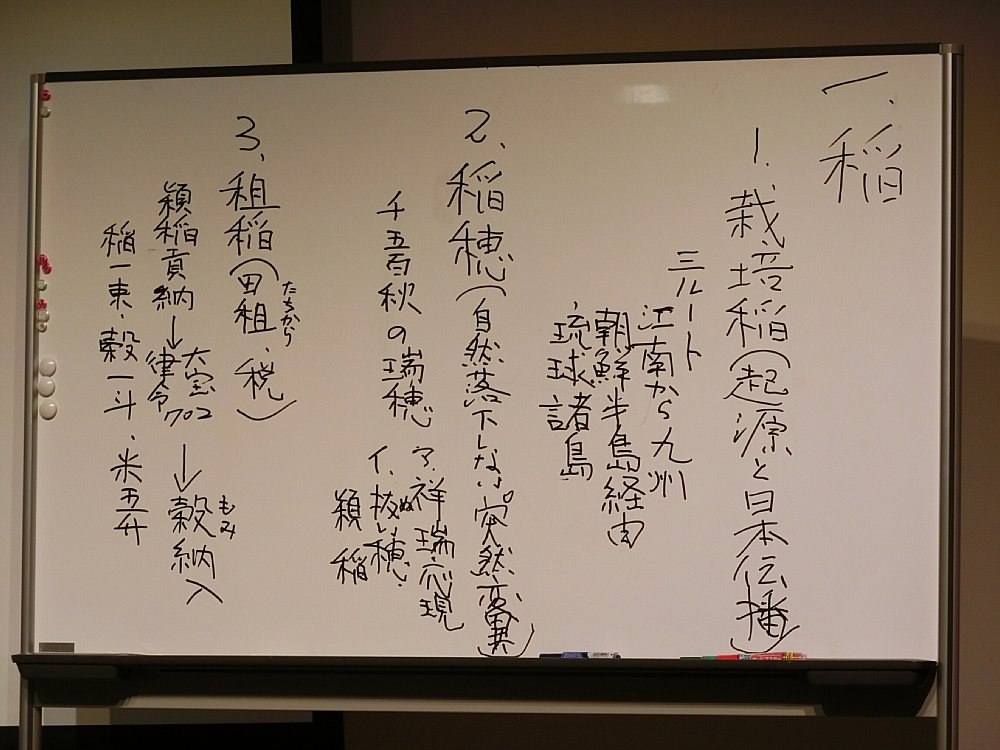 一、稲
1、栽培稲（起源と日本伝播）
三ルート
江南から九州
朝鮮半島経由
琉球諸島
2、稲穂（自然落下しない突然変異）
千五百秋の瑞穂
ア、祥瑞応現
イ、抜穂、
ぬい
穎稲
3、租稲（田租、税）
たちから
穎稲貢納→律令
大宝702
→穀納入
もみ
稲一束・穀一斗・米五升